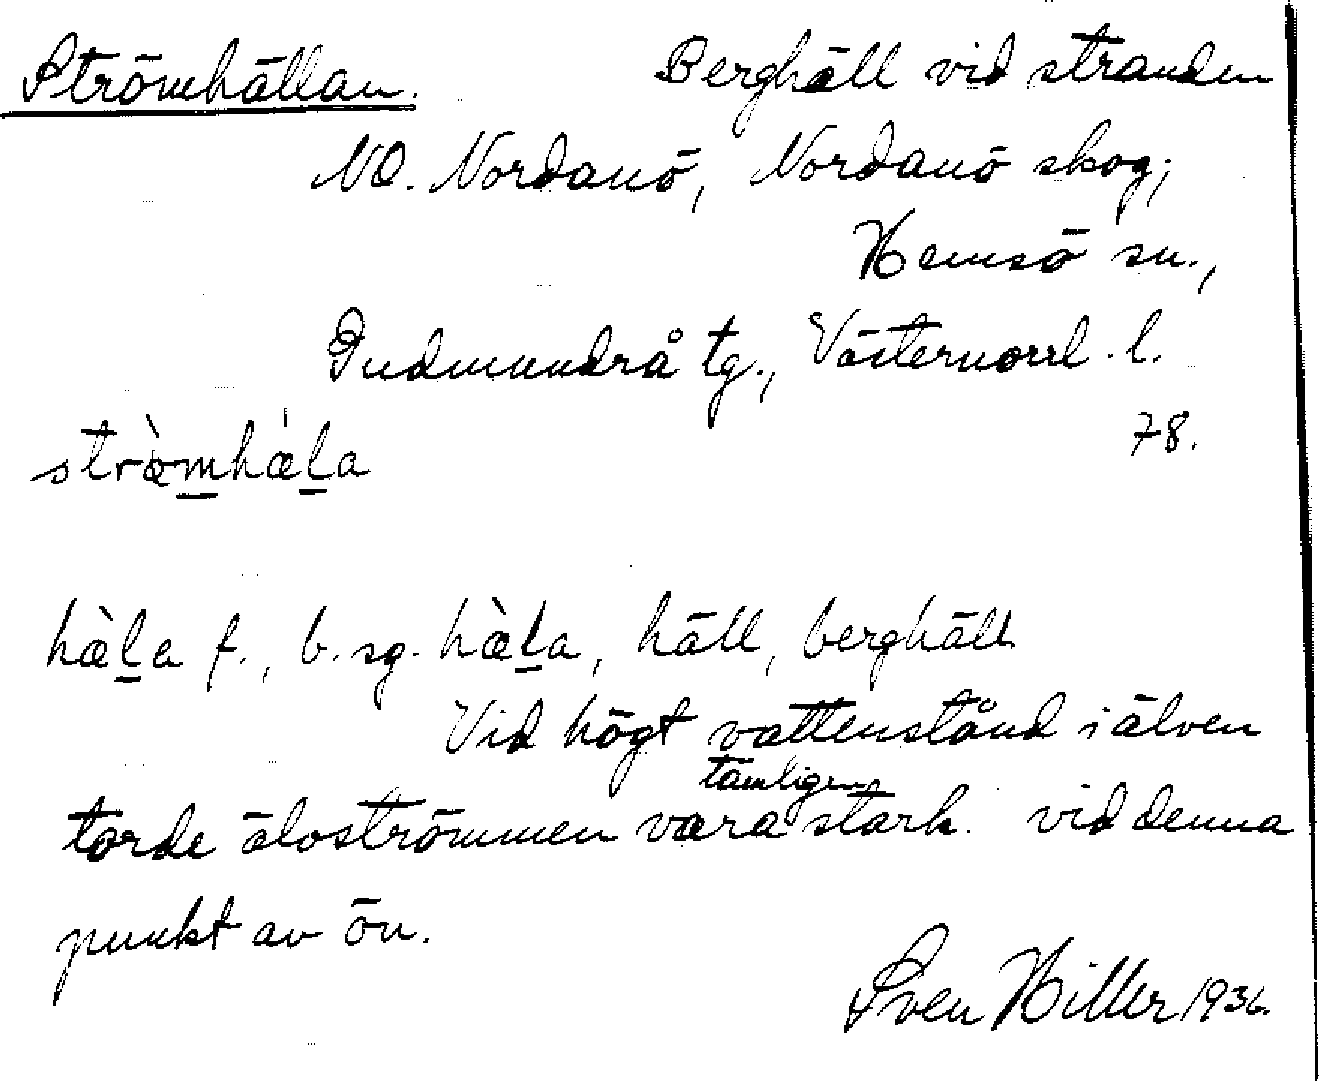 Strömhällan. Berghäll vid stranden
NO. Nordanö, Nordanö skog;
Hemsö sn.,
Gudmundrå tg., Västernorrl. l.
78.
stræ̀mhæ̍l̲a
hæ̀l̲a f., b. sg. hæ̀l̲a, häll, berghäll
Vid högt vattenstånd i älven
torde älvströmmen vara tämligen stark vid denna
punkt av ön.
Sven Hiller 1936.